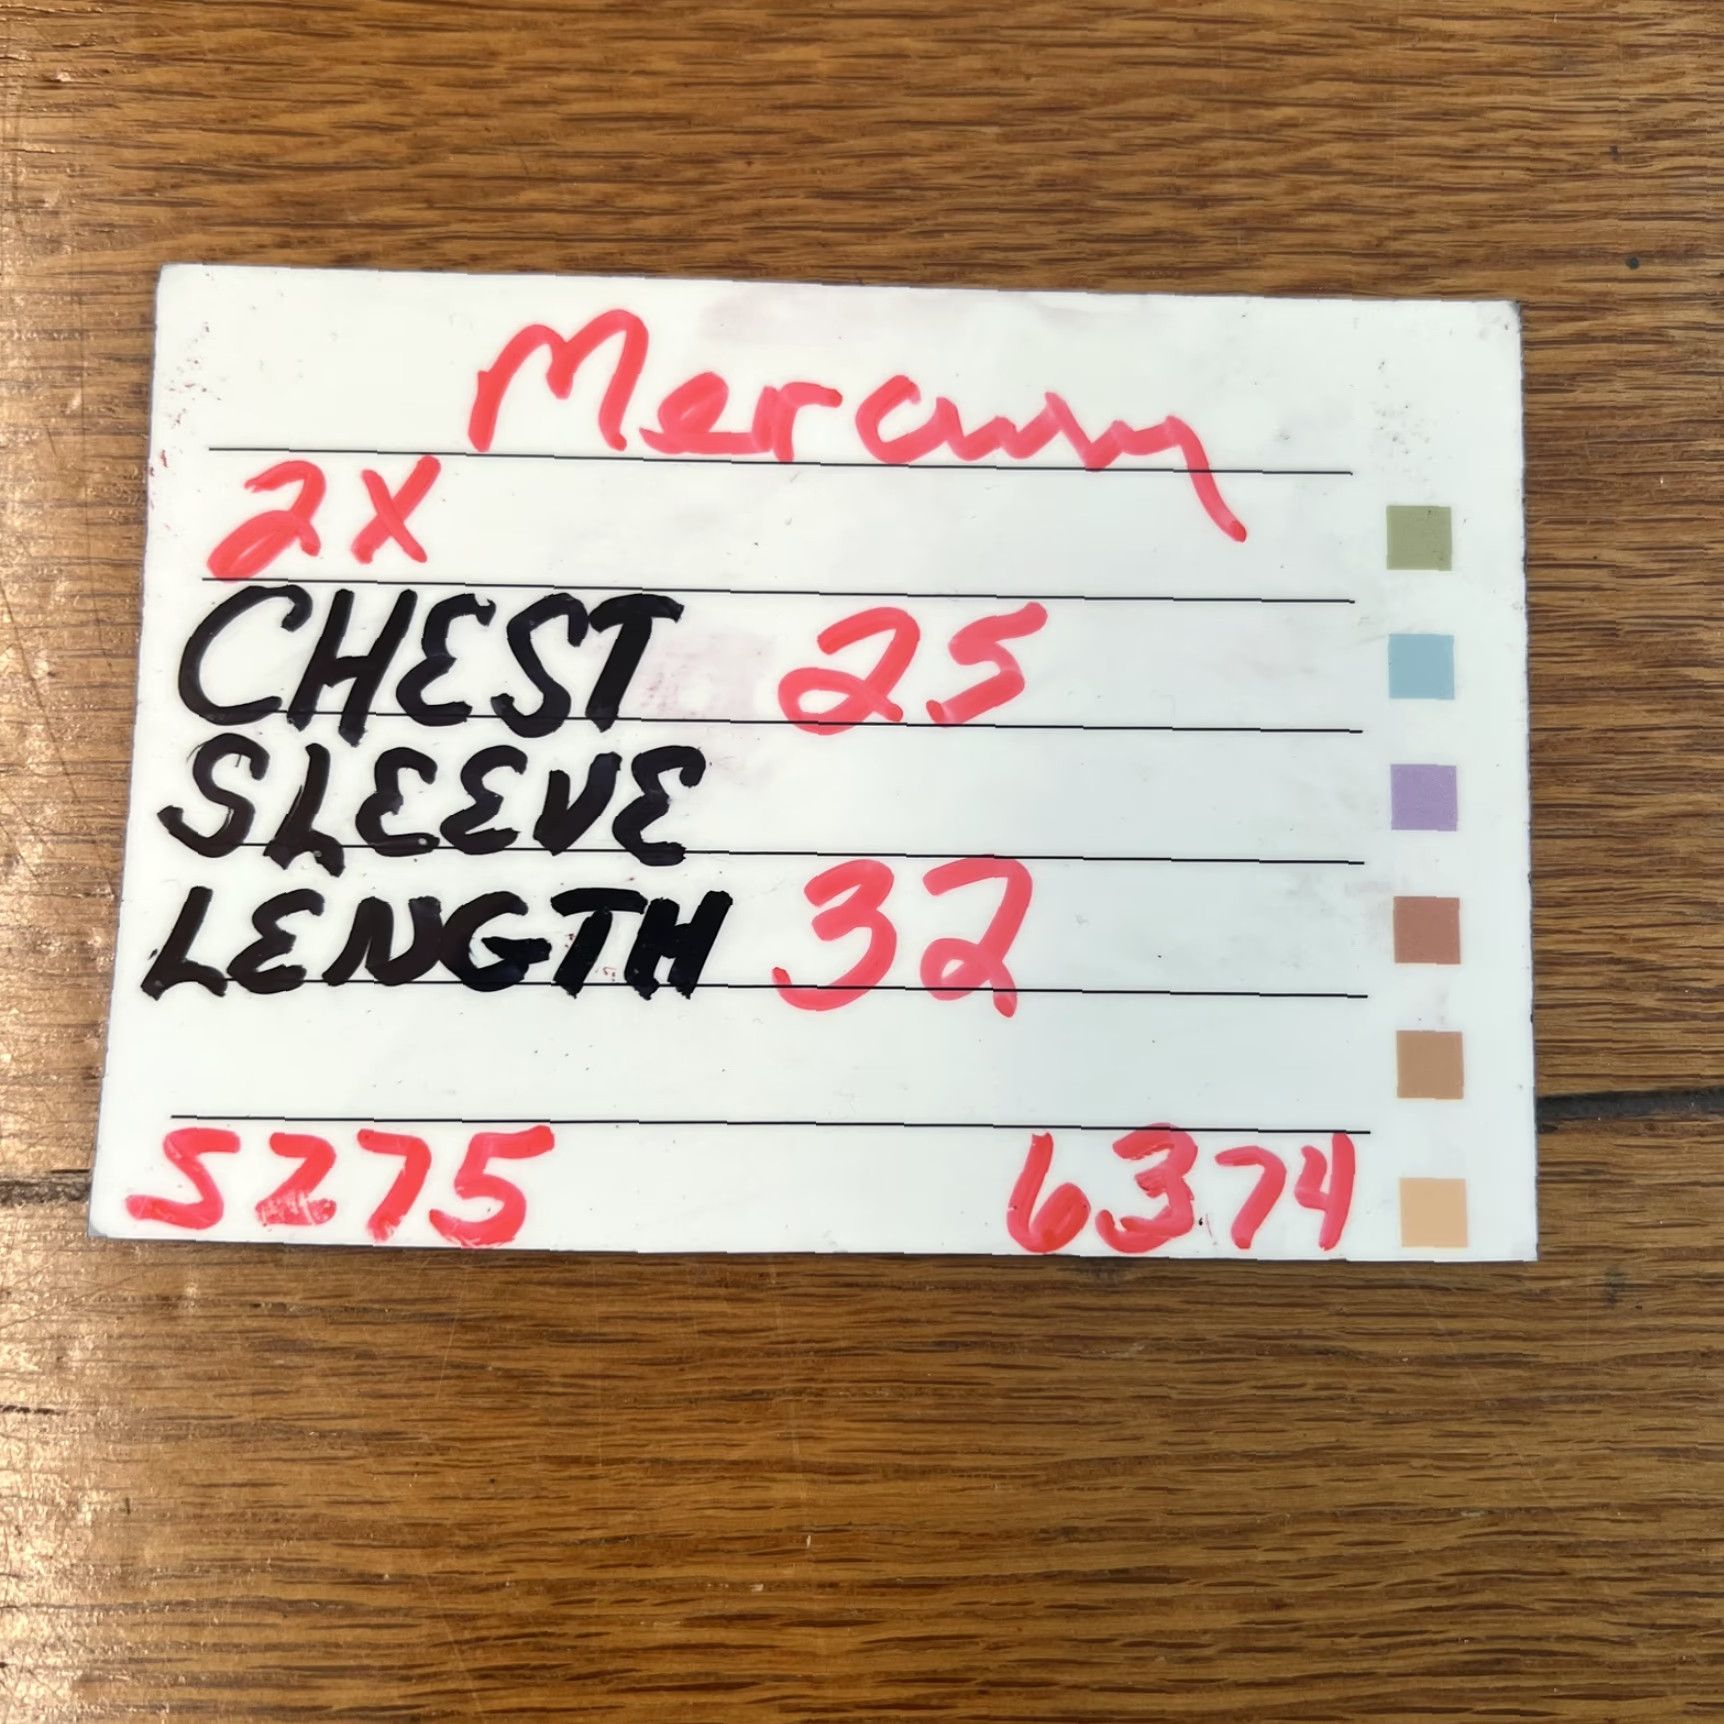 Mercury
2X
CHEST 25
SLEEVE
LENGTH 32
5275 6374